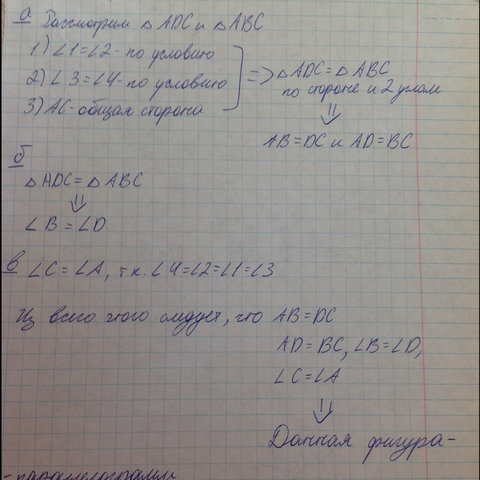 а Рассмотрим △ ADC и △ ABC
1) ∠1=∠2- по условию
2) ∠3=∠4- по условию
3) AC- общая сторона
=> △ADC=△ABC
по стороне и 2 углам
⇓
AB=DC и AD=BC
б
△ADC=△ABC
⇓
∠B=∠D
в ∠C=∠A, т.к. ∠4=∠2=∠1=∠3
Из всего этого следует, что AB=DC
AD=BC, ∠B=∠D,
∠C=∠A
⇓
Данная фигура-
-параллелограмм